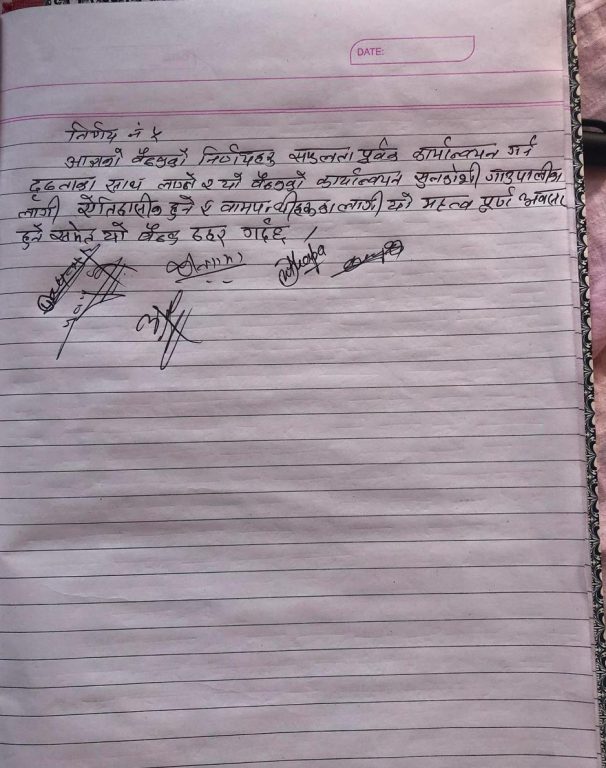 DATE:
निर्णय नं ५
आजको बैठकको निर्णयहरु सफलता पूर्वक कार्यान्वयन गर्न
दृढताका साथ लाग्ने र यो बैठकको कार्यान्वयन सुनकोशी गाउपालीका
लागी ऐतिहासीक हुने र वामपंथीहरुका लागी यो महत्व पुर्ण अवसर
हुने समेत यो बैठक ठहर गर्दछ /
Thapa